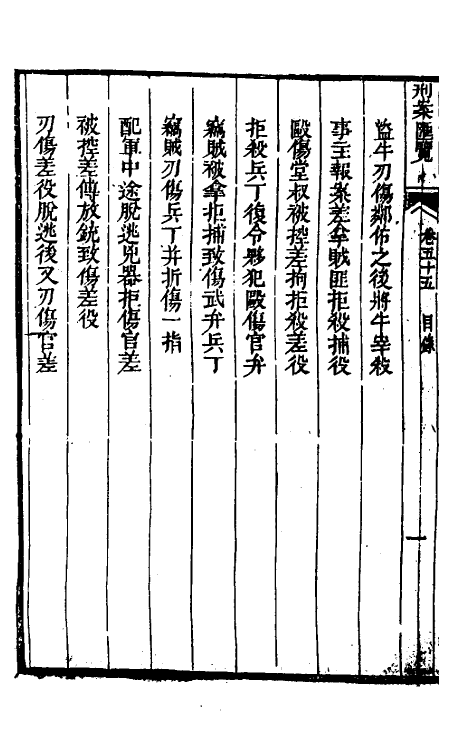 刑案匯覽
卷五十五 目錄
一
盜牛刃傷鄰佑之後將牛宰殺
事主報案差拿賊匪拒殺捕役
毆傷堂叔被控差拘拒殺差役
拒殺兵丁復令夥犯毆傷官弁
竊賊被拿拒捕致傷武弁兵丁
竊賊刃傷兵丁并折傷一指
配軍中途脫逃兇器拒傷官差
被控差傳放銃致傷差役
刃傷差役脫逃後又刃傷官差